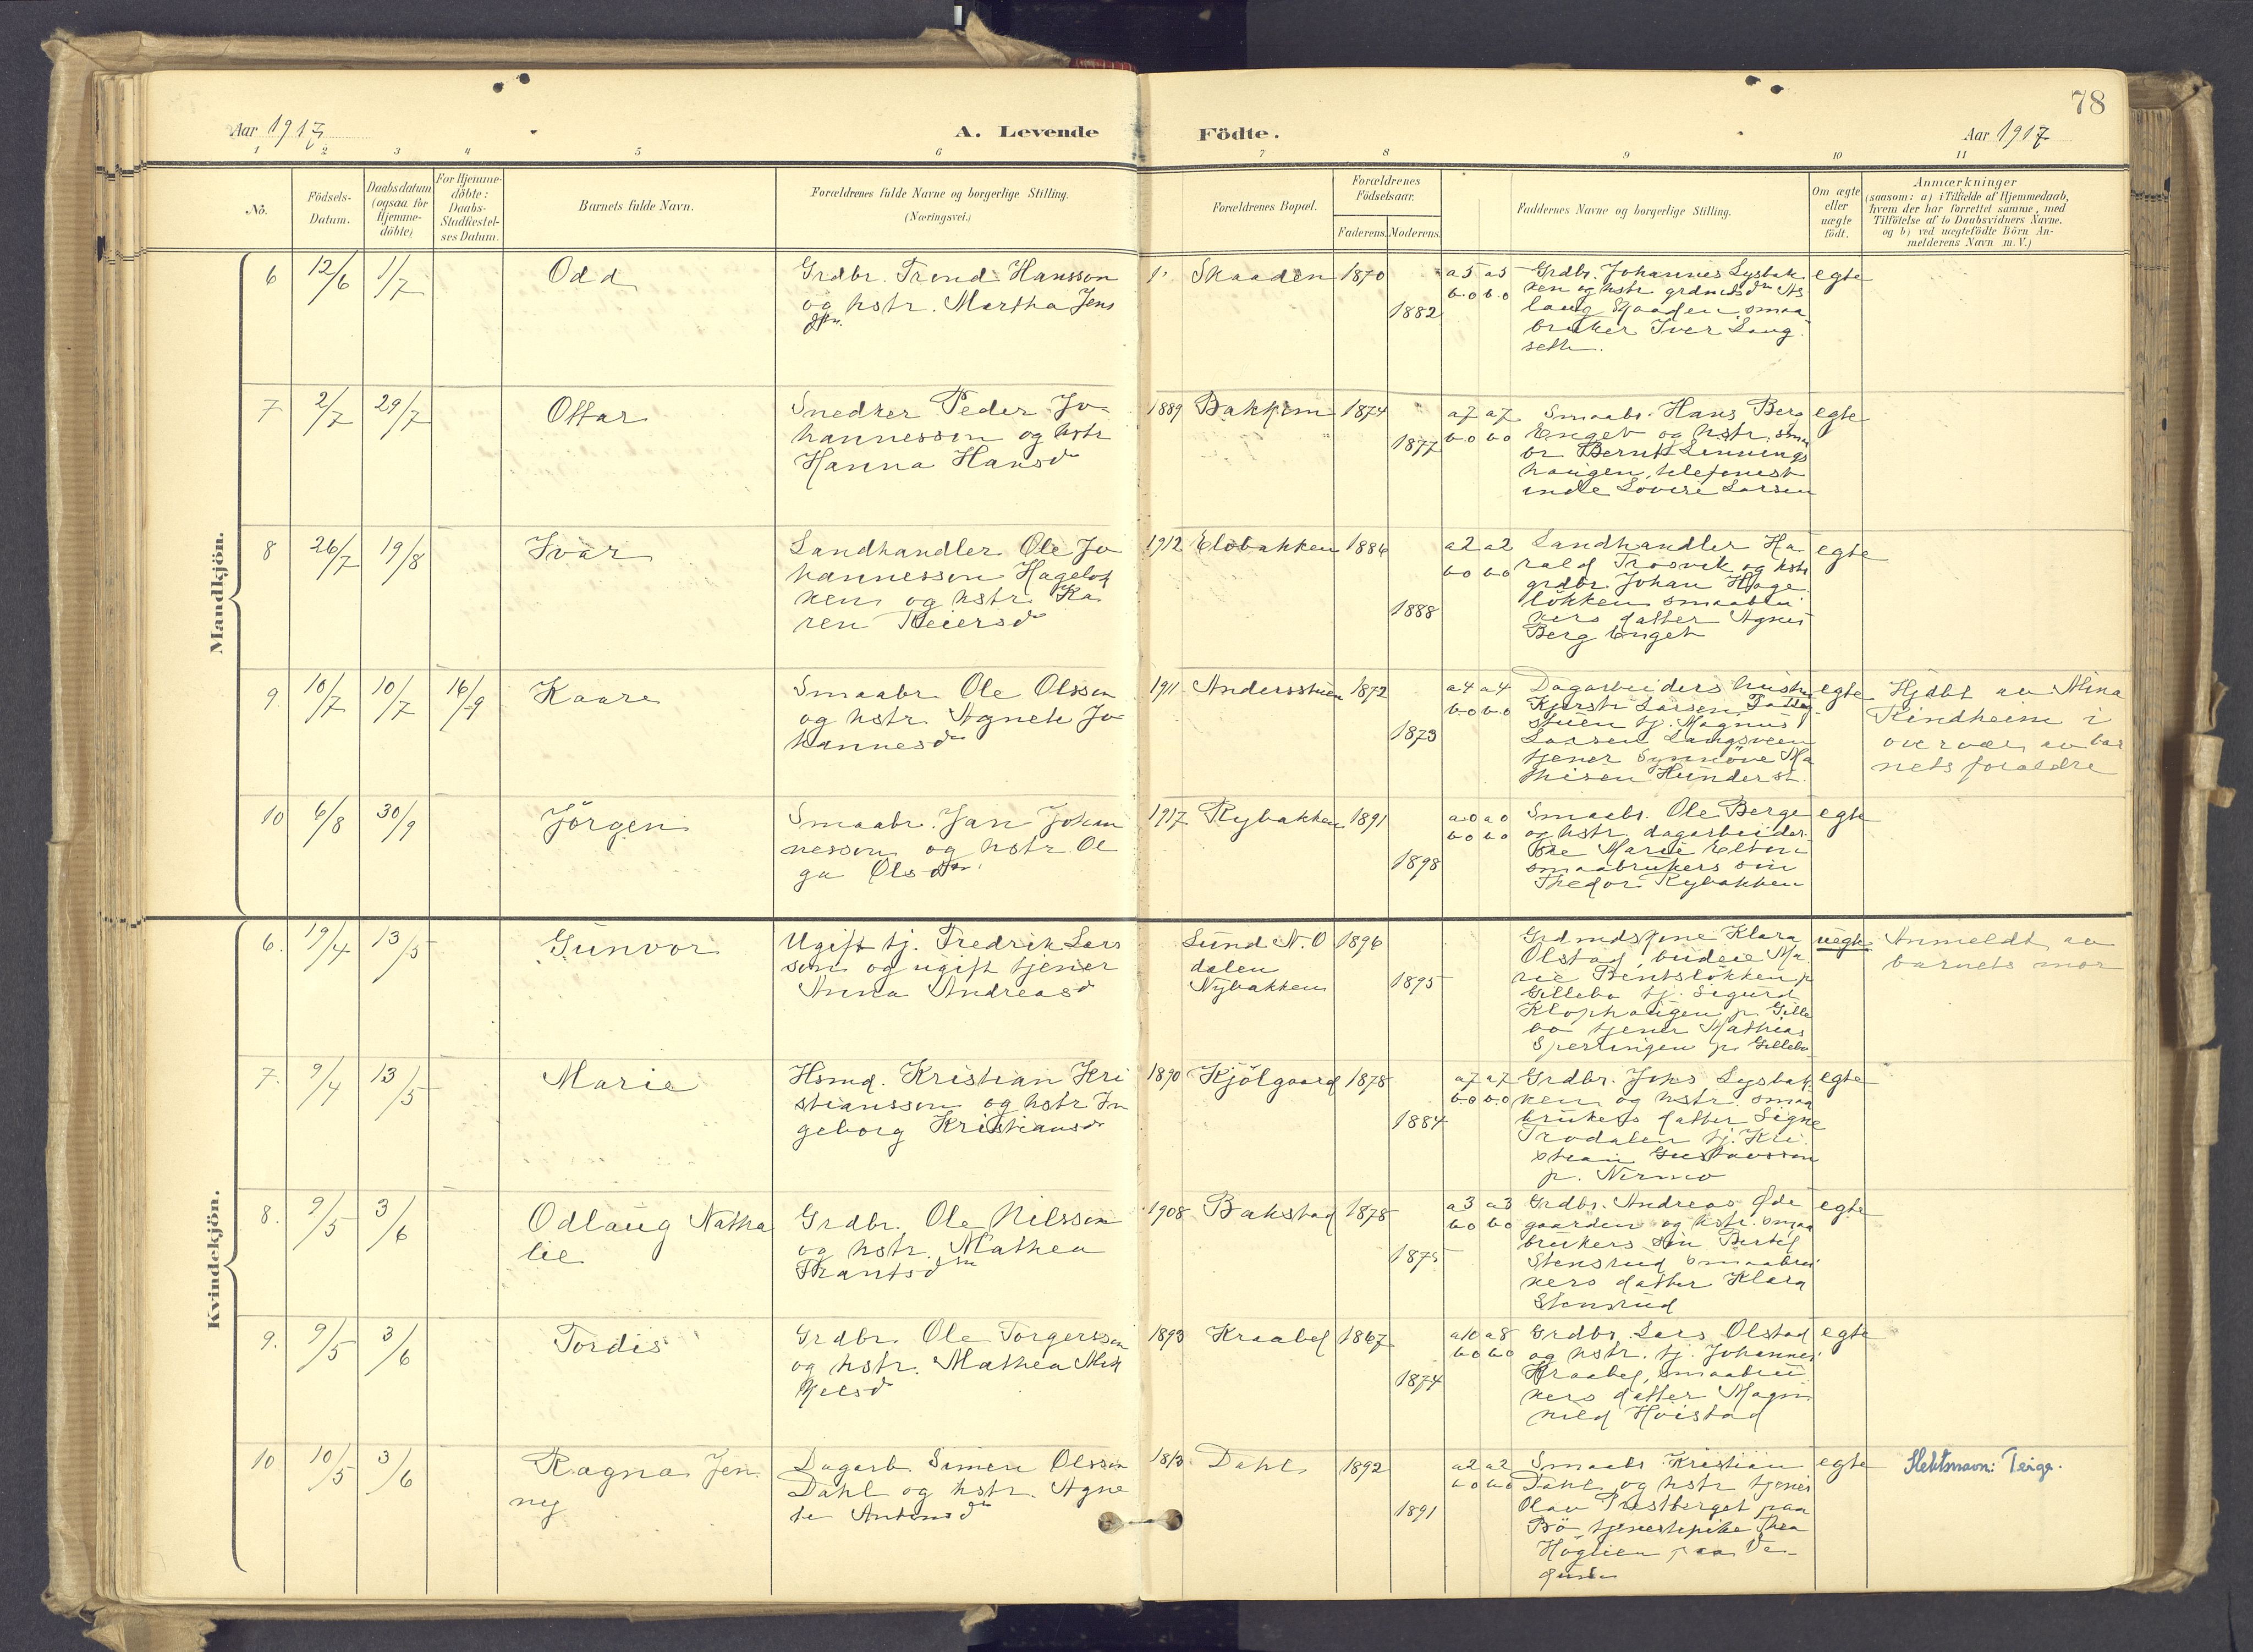 78
Aar 1917
A. Levende
Födte.
Aar 1917
1 2 3 4 5 6 7 8 9 10 11
No.
Födsels-
Datum.
Daabsdatum
(ogsaa for
Hjemme-
döbte)
For Hjemme-
döbte:
Daabs-
Stadfæstel-
ses Datum.
Barnets fulde Navn.
Forældrenes fulde Navne og borgerlige Stilling.
(Næringsvei.)
Forældrenes Bopæl.
Forældrenes
Födselsaar.
Faderens. Moderens.
Faddernes Navne og borgerlige Stilling.
Om ægte
eller
uægte
födt.
Anmærkninger
(saasom: a) i Tilfælde af Hjemmedaab,
hvem der har forrettet samme, med
Tilföielse af to Daabsvidners Navne.
og b) ved uægtefödte Börn An-
melderens Navn m. V.)
Mandkjön.
6 12/6 1/7 Odd
Grdbr. Trond Hansson
og hstr. Martha Jens
dtr.
Skaaden 1870
1882
a5 a5
b.o b.o
Grdbr. Johannes Lysbak
ken og hstr grdmdsdtr As
laug Skaaden, smaa
bruker Iver Laug
seth.
egte
7 2/7 29/7 Ottar
Snedker Peder Jo
hannesson og hstr
Hanna Hansdr
1889 Bakken 1874
1877
a7 a7
b.o b.o
Smaabr. Hans Berg
Enget og hstr. smaa
br Bernt Linnings
haugen, telefonist
inde Lovise Larsen
egte
8 26/7 19/8 Ivar
Landhandler Ole Jo
hannesson Hagelök
ken og hstr. Ka
ren Reiersdr
1912 Elobakken 1886
1888
a2 a2
b.o b.o
Landhandler Ha
rald Trosvik og hstr
grdbr. Johan Hage
lökken smaabru
kers datter Agnes
Berg Enget
egte
9 10/7 10/7 16/9 Kaare
Smaabr. Ole Olsson
og hstr. Agnete Jo
hannesdr
1911 Andersstuen 1872
1873
a4 a4
b.o b.o
Dagarbeiders hustru
Kjersti Larsen
stuen tj. Magnus
Larsen Langsveen
tjener Synnöve Ma
thisen Hunderst.
egte
Hjdbt av Mina
Kindheim i
overvær av bar
nets forældre
10 6/8 30/9 Jörgen
Smaabr. Jan Johan
nesson og hstr. Ol
ga Olsdtr.
1917 Rybakken 1891
1898
a.o a.o
b.o b.o
Smaabr. Ole Berge
og hstr. dagarbeider
ske Marie Elton
smaabrukers sön
Thedor Rybakken
egte
Kvindekjön.
6. 19/4 13/5 Gunvor
Ugift tj. Fredrik Lars
son og ugift tjener
Anna Andreasdr
Lund N. O
dalen
Nybakken
1896
1895
Grdmdspine Klara
Olstad, budeie Ma
rie Bentslökken p
Gillebo tj. Sigurd
Klophaugen p. Gille
bo tjener Mathias
Sperlingen p. Gillebo
uegte
Anmeldt av
barnets mor
7. 9/4 13/5 Marie
Hsmd. Kristian Kri
stiansson og hstr In
geborg Kristiansdr
1890 Kjölgaard 1878
1884
a7 a7
b.o b.o
Grdbr. Johs Lysbak
ken og hstr. smaa
brukers datter Signe
Trodalen tj. Kri
stian Gustavsson
p. Nermo
egte
8. 9/5 3/6 Odlaug Natha
lie
Grdbr. Ole Nilsson
og hstr. Mathea
Frantsdtr
1908 Bakstad 1878
1875
a3 a3
b.o b.o
Grdbr. Andreas Öde
gaarden og hstr. smaa
brukers sön Bertel
Stensrud smaabru
kers datter Klara
Stensrud
egte
9. 9/5 3/6 Tordis
Grdbr. Ole Torgersson
og hstr. Mathea Mik
kelsdr
1893 Kraabel 1867
1874
a10 a8
b.o b.o
Grdbr. Lars Olstad
og hstr. tj. Johannes
Kraabel, smaabru
kers datter Magn
hild Höistad
egte
10 10/5 3/6 Ragna Jen
ny
Dagarb. Simen Olsson
Dahl og hstr. Agne
te Antonsdtr
1813 Dahl 1892
1891
a2 a2
b.o b.o
Smaabr Kristian
Dahl og hstr tjener
Olav Prestberget paa
Bö, tjenestepike Thea
Höglien paa
egte
Slektsnavn: Teige.